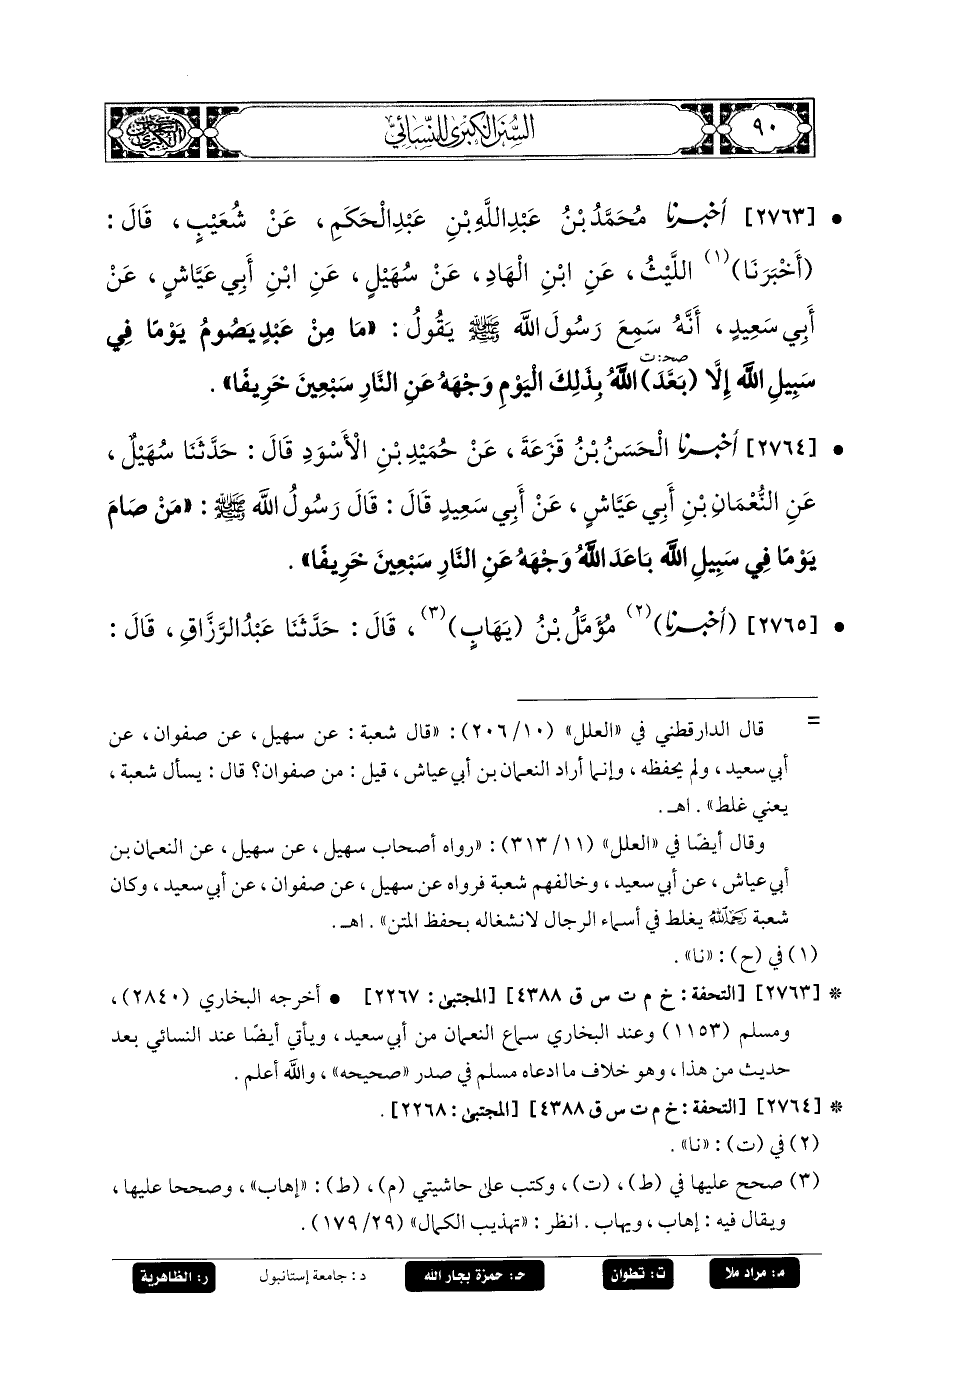 السنن الكبرى للنسائي
٩٠
• [٢٧٦٣] أخبرنا مُحَمَّدُ بْنُ عَبْدِاللَّهِ بْنِ عَبْدِالْحَكَمِ، عَنْ شُعَيْبٍ، قَالَ :
(أَخْبَرَنَا)(١) اللَّيْثُ، عَنِ ابْنِ الْهَادِ، عَنْ سُهَيْلٍ، عَنِ ابْنِ أَبِي عَيَّاشٍ، عَنْ
أَبِي سَعِيدٍ، أَنَّهُ سَمِعَ رَسُولَ اللَّه ﷺ يَقُولُ : «مَا مِنْ عَبْدٍ يَصُومُ يَوْمًا فِي
صحـ: ت
سَبِيلِ اللَّه إِلَّا (بَعَّدَ) اللَّهُ بِذَلِكَ الْيَوْمِ وَجْهَهُ عَنِ النَّارِ سَبْعِينَ خَرِيفًا» .
• [٢٧٦٤] أخبرنا الْحَسَنُ بْنُ قَزَعَةَ، عَنْ حُمَيْدِ بْنِ الْأَسْوَدِ قَالَ : حَدَّثَنَا سُهَيْلٌ،
عَنِ النُّعْمَانِ بْنِ أَبِي عَيَّاشٍ، عَنْ أَبِي سَعِيدٍ قَالَ : قَالَ رَسُولُ اللَّه ﷺ : «مَنْ صَامَ
يَوْمًا فِي سَبِيلِ اللَّه بَاعَدَ اللَّهُ وَجْهَهُ عَنِ النَّارِ سَبْعِينَ خَرِيفًا» .
• [٢٧٦٥] (أخبرنا)(٢) مُؤَمَّلُ بْنُ (يَهَابٍ)(٣)، قَالَ : حَدَّثَنَا عَبْدُالرَّزَّاقِ، قَالَ :
= قال الدارقطني في «العلل» (١٠/ ٢٠٦) : «قال شعبة : عن سهيل، عن صفوان، عن
أبي سعيد، ولم يحفظه، وإنما أراد النعمان بن أبي عياش، قيل : من صفوان؟ قال : يسأل شعبة،
يعني غلط» . اهـ .
وقال أيضًا في «العلل» (١١/ ٣١٣) : «رواه أصحاب سهيل، عن سهيل، عن النعمان بن
أبي عياش، عن أبي سعيد، وخالفهم شعبة فرواه عن سهيل، عن صفوان، عن أبي سعيد، وكان
شعبة رَحِمَهُ اللَّهُ يغلط في أسماء الرجال لانشغاله بحفظ المتن» . اهـ .
(١) في (ح) : «نا» .
* [٢٧٦٣] [التحفة : خ م ت س ق ٤٣٨٨] [المجتبى : ٢٢٦٧] • أخرجه البخاري (٢٨٤٠)،
ومسلم (١١٥٣) وعند البخاري سماع النعمان من أبي سعيد، ويأتي أيضًا عند النسائي بعد
حديث من هذا، وهو خلاف ما ادعاه مسلم في صدر «صحيحه»، واللَّه أعلم .
* [٢٧٦٤] [التحفة : خ م ت س ق ٤٣٨٨] [المجتبى : ٢٢٦٨] .
(٢) في (ت) : «نا» .
(٣) صحح عليها في (ط)، (ت)، وكتب على حاشيتي (م)، (ط) : «إهاب»، وصححا عليها،
ويقال فيه : إهاب، ويهاب . انظر : «تهذيب الكمال» (٢٩/ ١٧٩) .
م: مراد ملا ت: تطوان حـ: حمزة بجار الله د: جامعة إستانبول ر: الظاهرية